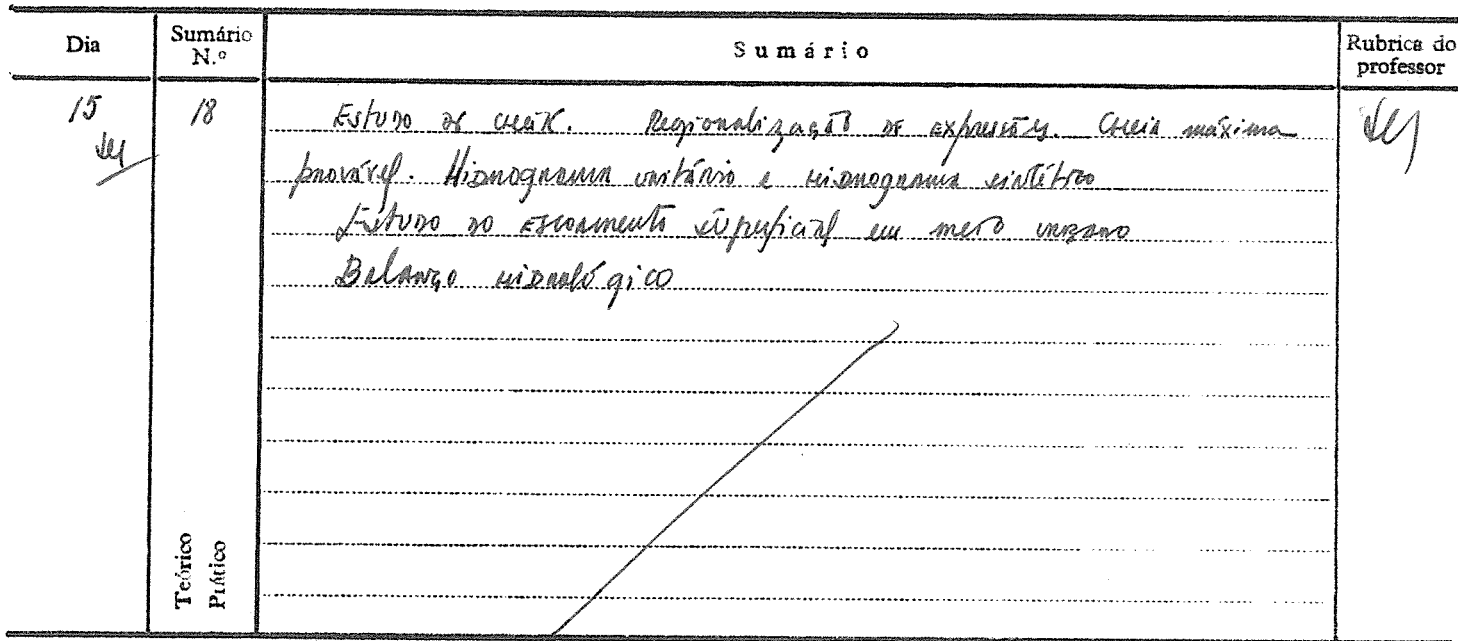 Dia
Sumário N.º
Sumário
Rubrica do professor
15
18
Estudo de cheias. Regionalização de expressões. Cheia máxima
provável. Hidrograma unitário e hidrograma sintético
Estudo do escoamento superficial em meio urbano
Balanço hidrológico
Teórico
Prático